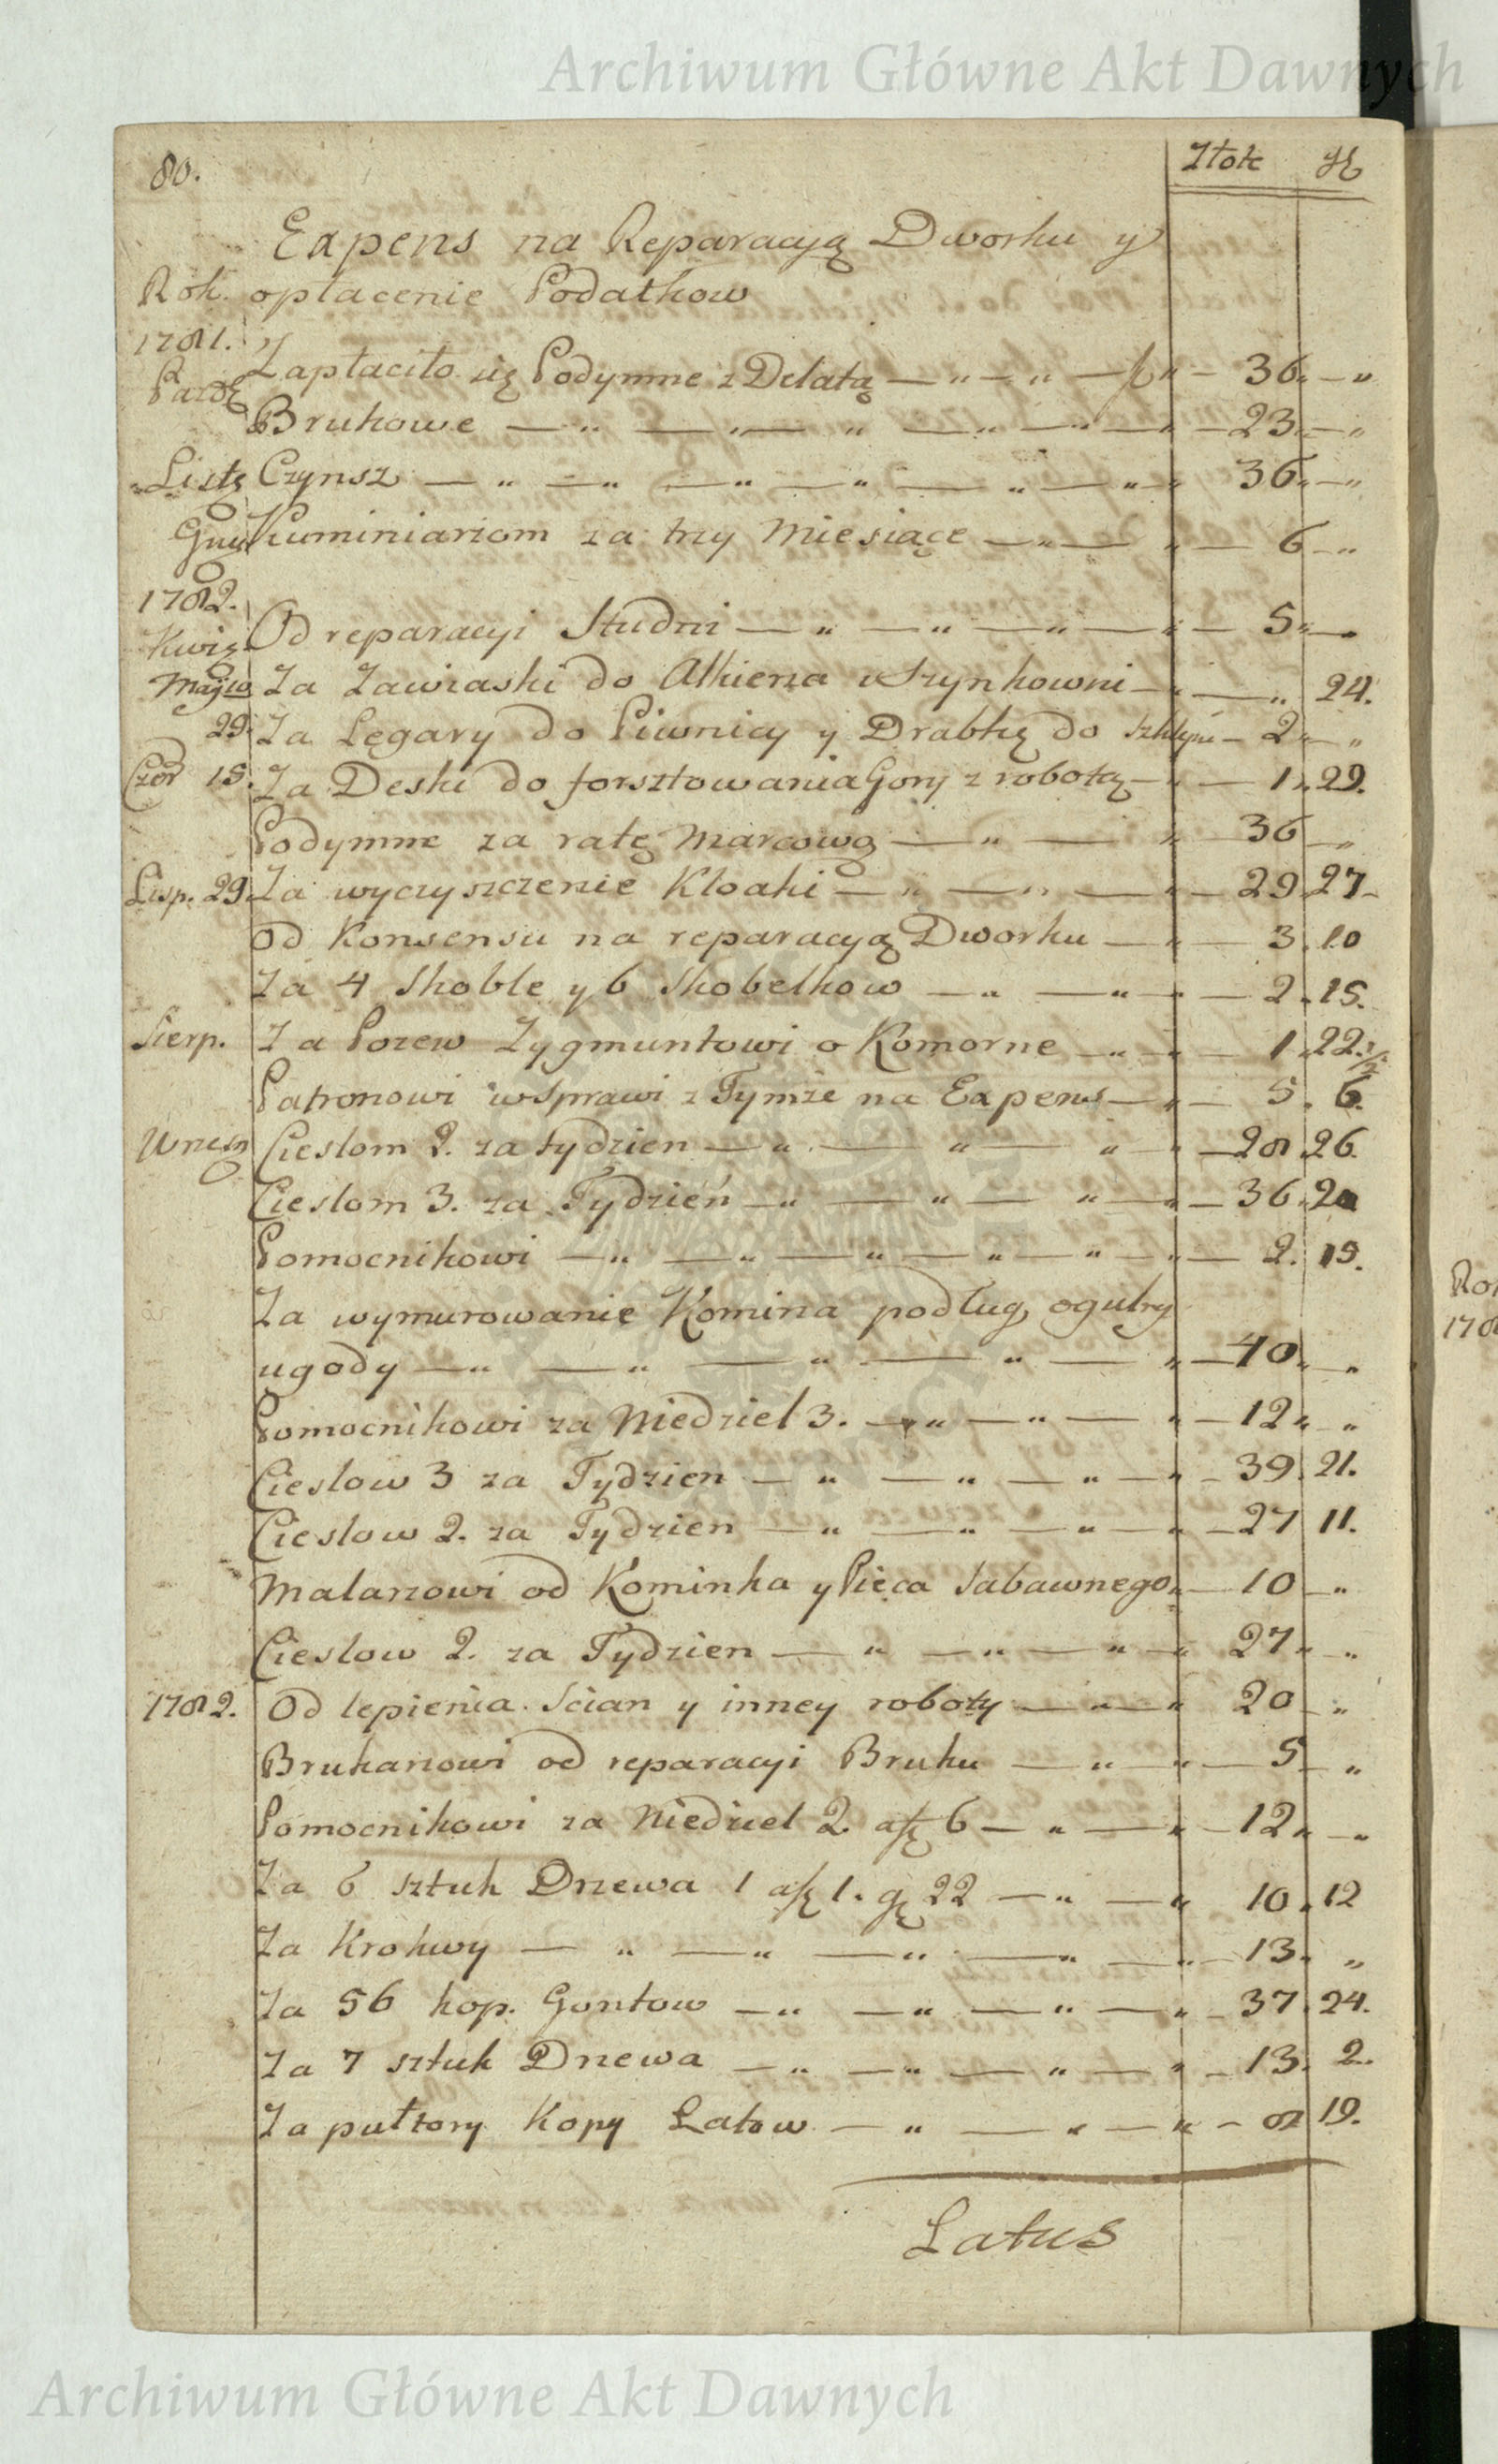 Archiwum Główne Akt Dawnych
80.
Złote gr
Expens na Reparacyią Dworku y
Rok. opłacenie Podatkow
1781.
Pazdź Zapłaciło się Podymne z Delatą — " — " — f " — 36 " — "
Brukowe — " — " — " — " — " — " — 23 " — "
List Czynsz — " — " — " — " — " — " — 36 " — "
Gru Kuminiarzom za trzy Miesiące — " — " — 6 — "
1782.
Kwie Od reparacyi Studni — " — " — " — " — 5 " —
Maja Za Zawiaski do Alkierza w Szynkowni — " — " 24.
29. Za Legary do Piwnicy y Drabkę do — 2 " — "
Czer 15. Za Deski do forsztowania Gory z robotą — " — 1 " 29.
Podymne za ratę Marcową — " — " — 36 — "
Lisp. 29. Za wyczyszczenie Kloaki — " — " — " — 29. 27 —
Od Konsensu na reparacyą Dworku — " — 3. 10
Za 4 Skoble y 6 Skobelkow — " — " — " — 2 . 15.
Sierp. Za Pozew Zygmuntowi o Komorne — " — " — 1 . 22. 1/2
Patronowi w Sprawi z Tymże na Expens — " — 5 . 6.
Wrzes Cieslom 2. za tydzien — " — " — " — " — 28 . 26.
Cieslom 3. za Tydzień — " — " — " — " — 36 . 20
Pomocnikowi — " — " — " — " — " — " — 2. 15.
Za wymurowanie Komina podług ogulny
ugody — " — " — " — " — " — 40 " — "
Pomocnikowi za Niedziel 3. — " — " — " — 12 " "
Cieslow 3 za Tydzien — " — " — " — " — 39. 21.
Cieslow 2. za Tydzien — " — " — " — " — 27 11.
Malarzowi od Kominka y Pieca Sabawnego " — 10 — "
Cieslow 2. za Tydzien — " — " — " — " 27 " — "
1782. Od lepienia Scian y inney roboty — " — " 20 — "
Brukarzowi od reparacyi Bruku — " — " — 5 — "
Pomocnikowi za Niedziel 2. a f 6 — " — " — 12 " — "
Za 6 sztuk Drzewa 1 a f 1. g 22 — " — " 10 . 12
Za Krokwy — " — " — " — " — " — 13. "
Za 56 kop. Gontow — " — " — " — " — 37. 24.
Za 7 sztuk Drzewa — " — " — " — " — 13. 2.
Za pułtory Kopy Łatow — " — " — " — 8 19.
Latus
Rok
178
Archiwum Główne Akt Dawnych